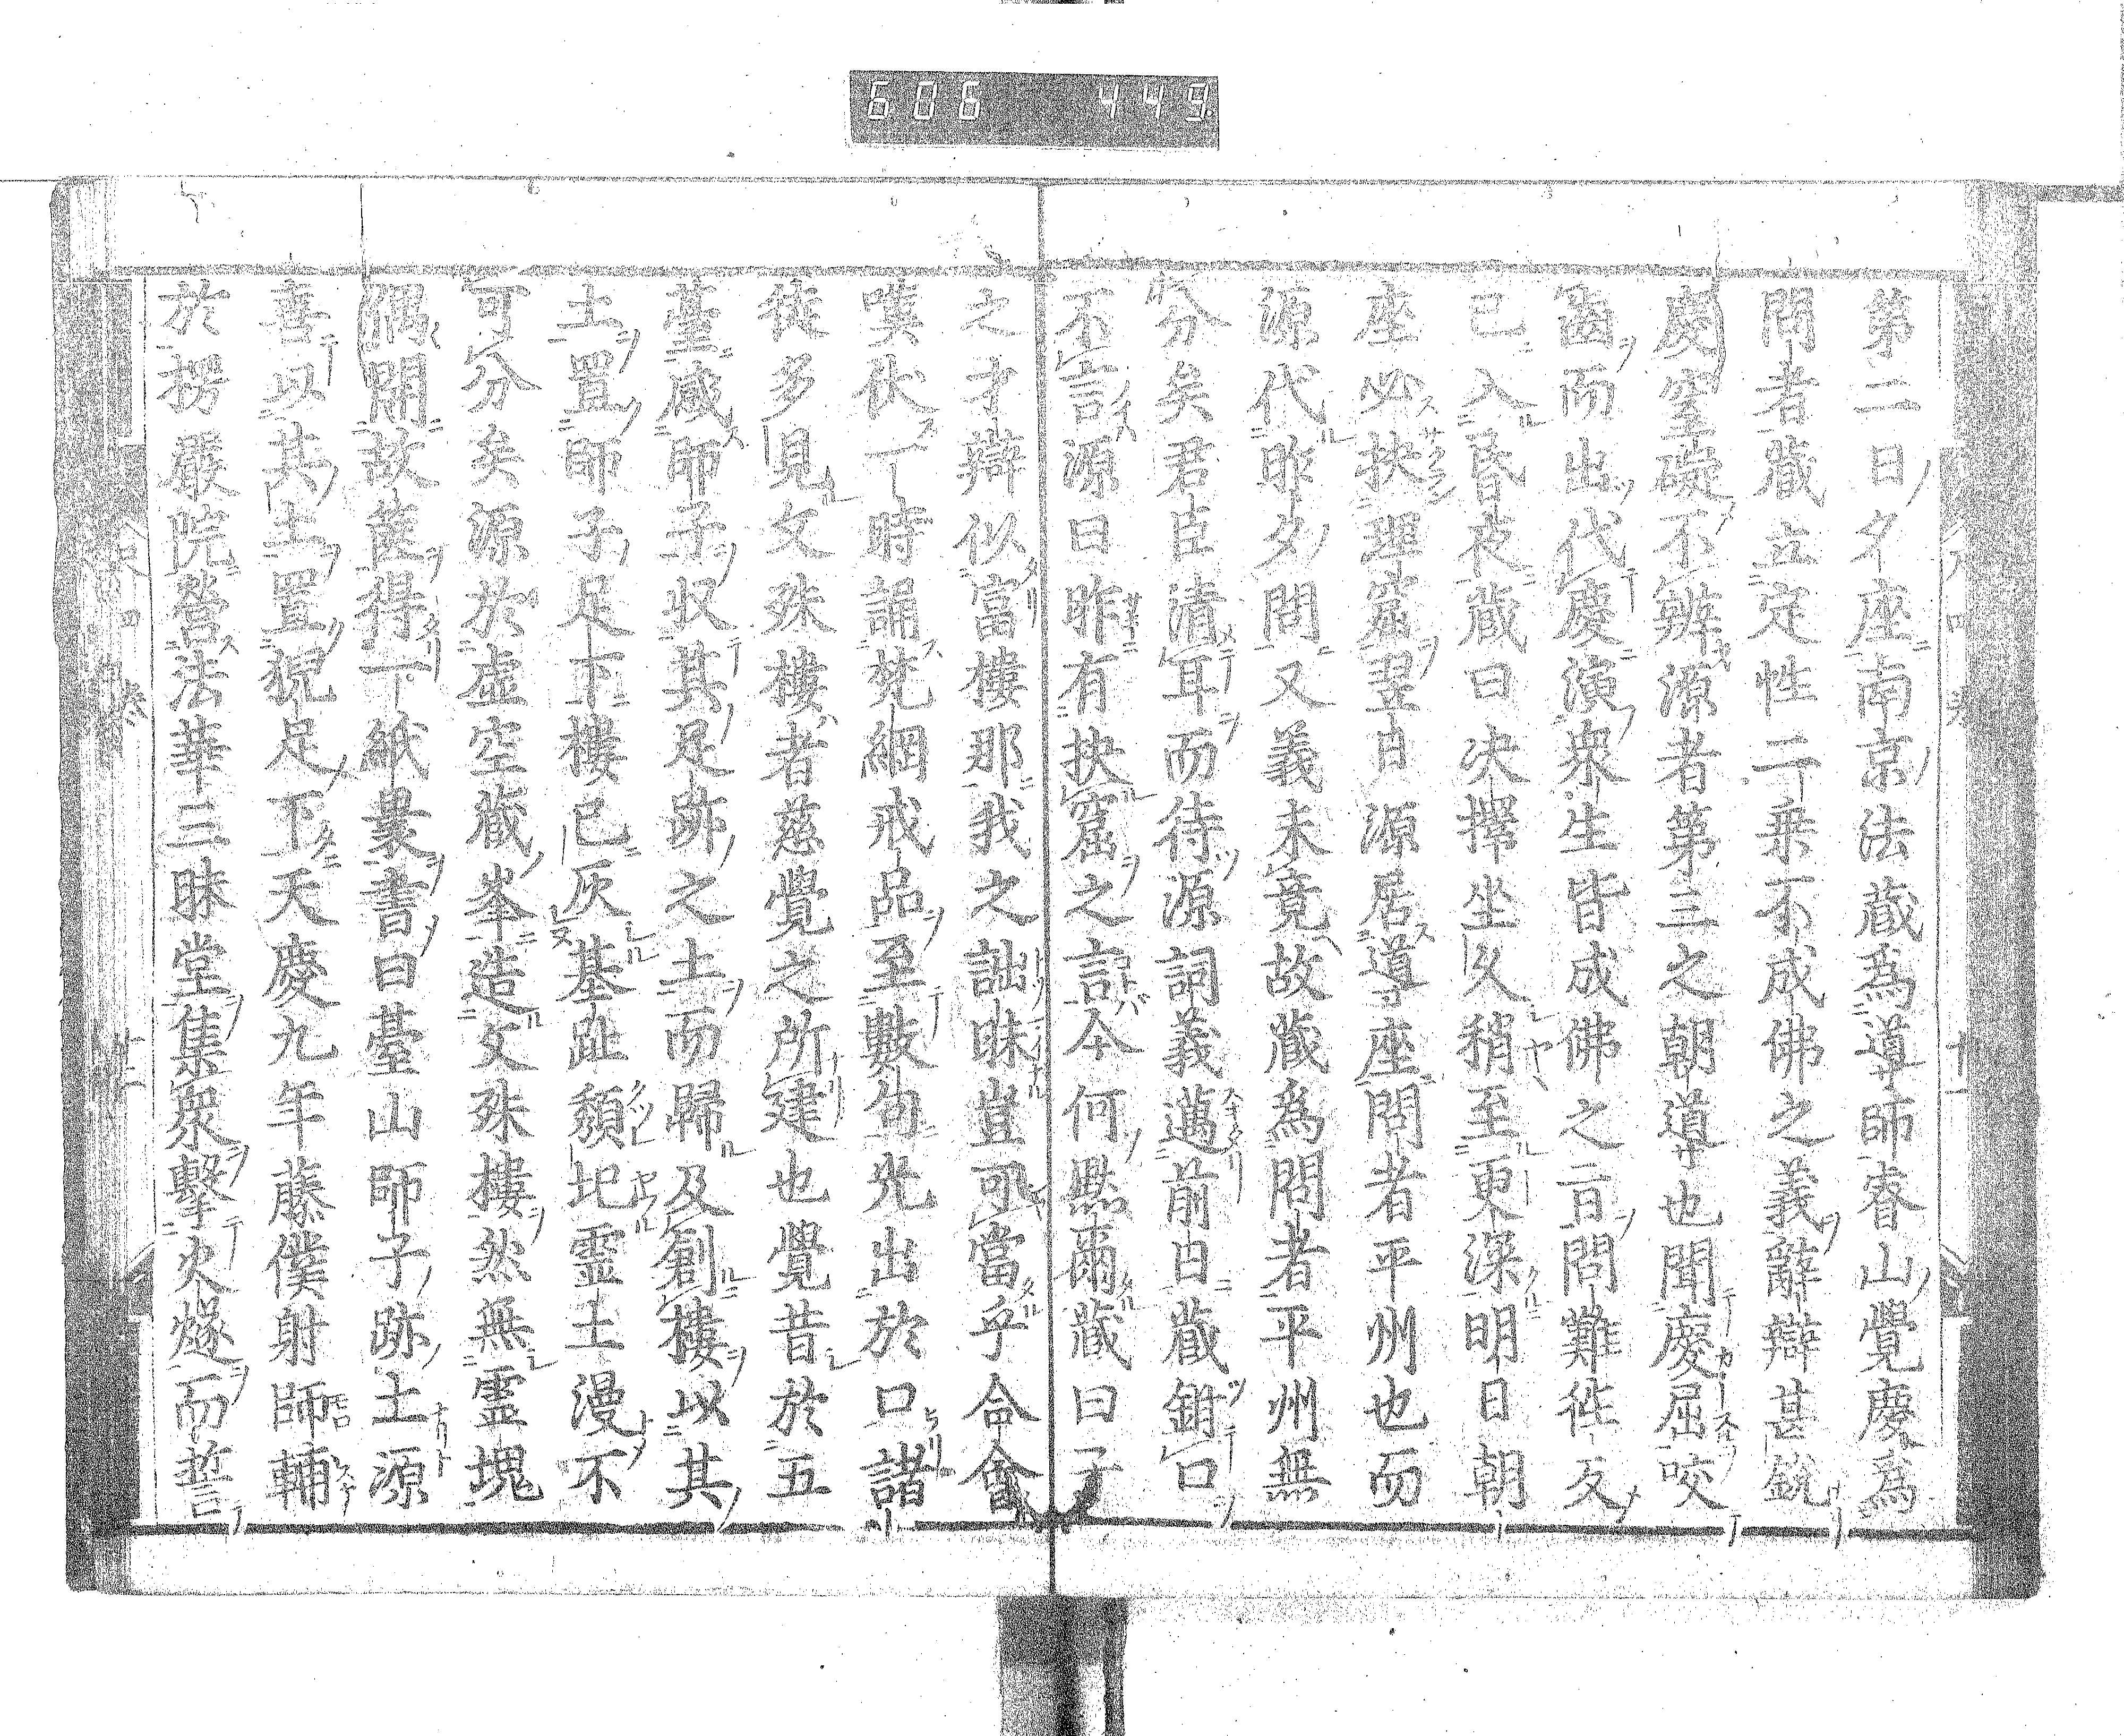 606 449
第二日夕座南京法藏爲導師睿山覺慶爲
問者藏立定性二乗不成佛之義辭辯甚銳
慶窒礙不辨源者第三之朝導也聞慶屈咬
齒而出代慶演衆生皆成佛之言問難徃反
已入昏夜藏曰决擇坐久稍至更深明日朝
座必抉理窟翌日源居導座問者平州也而
源代昨夕問又義未竟故藏爲問者平州無
分矣君臣清耳而待源詞義邁前日藏鉗口
不言源曰昨有抉窟之言今何黙爾藏曰子
之才辯似富樓那我之訥昧豈可當乎合會
嘆伏一時誦梵網戒品至數句光出於口諸
徒多見文殊樓者慈覺之所建也覺昔於五
臺感師子収其足跡之土而歸及創樓以其
土置師子足下樓已灰基趾頽圯靈土漫不
可分矣源於虛空藏峯造文殊樓然無靈塊
偶開故篋得一紙裹書曰臺山師子跡土源
喜以其土置猊足下天慶九年藤僕射師輔
於楞嚴院營法華三昧堂集衆擊火燧而誓